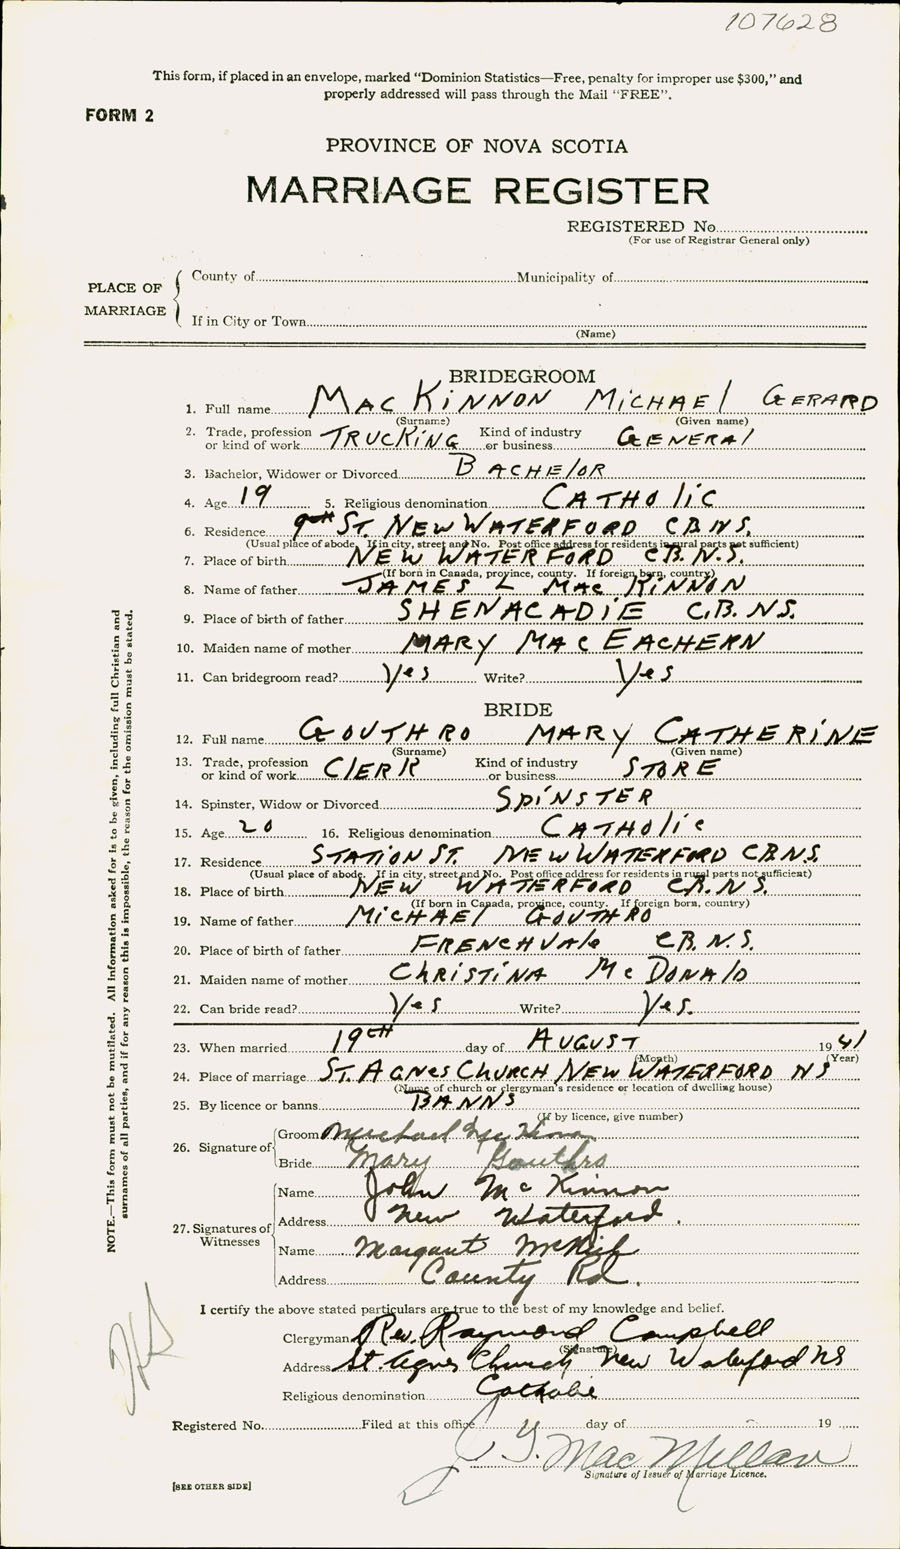 107628
This form, if placed in an envelope, marked "Dominion Statistics—Free, penalty for improper use $300," and
properly addressed will pass through the Mail "FREE".
FORM 2
PROVINCE OF NOVA SCOTIA
MARRIAGE REGISTER
REGISTERED No.
(For use of Registrar General only)
PLACE OF MARRIAGE
County of Municipality of
If in City or Town
(Name)
BRIDEGROOM
1. Full name MacKinnon Michael Gerard
(Surname) (Given name)
2. Trade, profession or kind of work Trucking Kind of industry or business General
3. Bachelor, Widower or Divorced Bachelor
4. Age 19 5. Religious denomination Catholic
6. Residence 9th St. New Waterford C.B.N.S.
(Usual place of abode. If in city, street and No. Post office address for residents in rural parts not sufficient)
7. Place of birth New Waterford C.B.N.S.
(If born in Canada, province, county. If foreign born, country)
8. Name of father James L MacKinnon
9. Place of birth of father Shenacadie C.B.N.S.
10. Maiden name of mother Mary MacEachern
11. Can bridegroom read? Yes Write? Yes
BRIDE
12. Full name Gouthro Mary Catherine
(Surname) (Given name)
13. Trade, profession or kind of work Clerk Kind of industry or business Store
14. Spinster, Widow or Divorced Spinster
15. Age 20 16. Religious denomination Catholic
17. Residence Station St. New Waterford C.B.N.S.
(Usual place of abode. If in city, street and No. Post office address for residents in rural parts not sufficient)
18. Place of birth New Waterford C.B.N.S.
(If born in Canada, province, county. If foreign born, country)
19. Name of father Michael Gouthro
20. Place of birth of father Frenchvale C.B.N.S.
21. Maiden name of mother Christina McDonald
22. Can bride read? Yes Write? Yes.
23. When married 19th day of August 1941
(Month) (Year)
24. Place of marriage St. Agnes Church New Waterford NS
(Name of church or clergyman's residence or location of dwelling house)
25. By licence or banns Banns
(If by licence, give number)
26. Signature of
Groom Michael McKinnon
Bride Mary Gouthro
27. Signatures of Witnesses
Name John McKinnon
Address New Waterford.
Name Margaret
Address County Rd.
I certify the above stated particulars are true to the best of my knowledge and belief.
Clergyman Rev. Raymond Campbell
(Signature)
Address St. Agnes Church New Waterford NS
Religious denomination Catholic
Registered No. Filed at this office day of 19
J. G. MacMillan
Signature of Issuer of Marriage Licence.
[SEE OTHER SIDE]
NOTE.—This form must not be mutilated. All information asked for is to be given, including full Christian and
surnames of all parties, and if for any reason this is impossible, the reason for the omission must be stated.